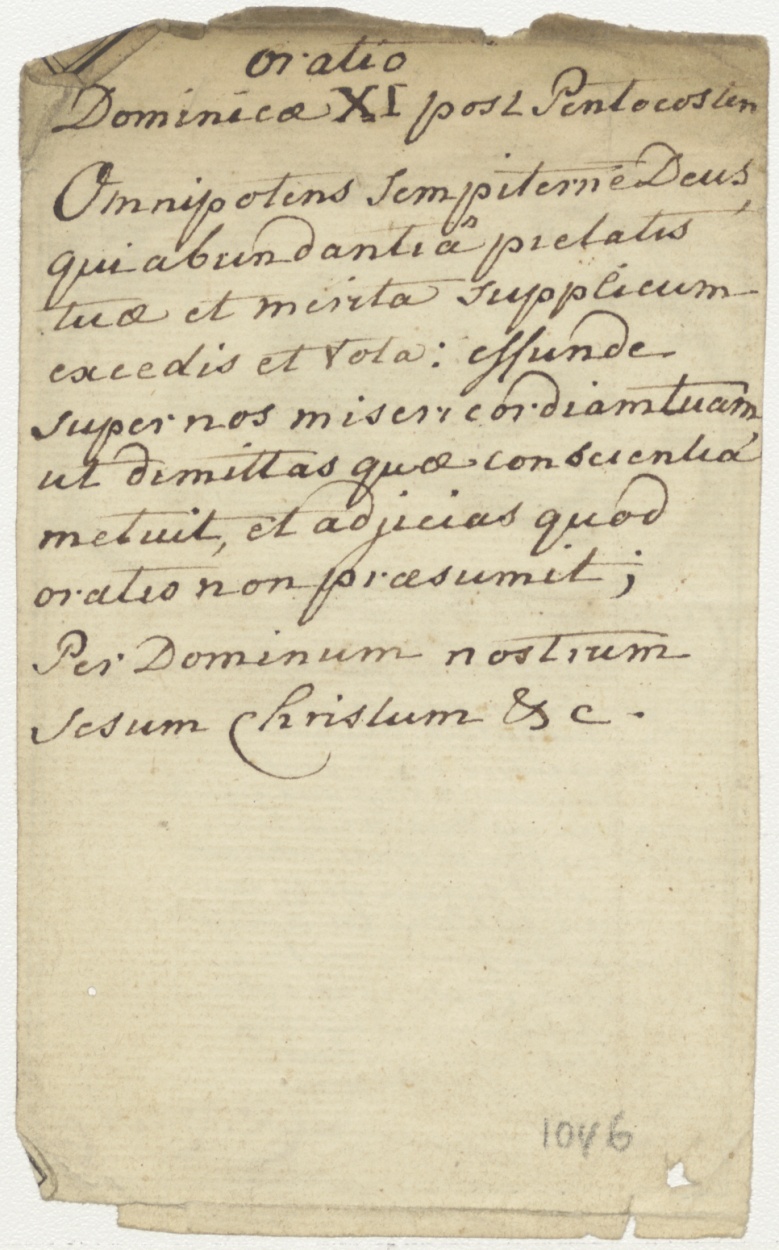 oratio
Dominicæ XI post Pentocosten
Omnipotens sempiterne Deus,
qui abundantiâ pietatis
tuæ et merita supplicum
excedis et vota: effunde
super nos misericordiam tuam
ut dimittas quæ conscientia
metuit, et adjicias quod
oratio non præsumit;
Per Dominum nostrum
Jesum Christum &c.
1046